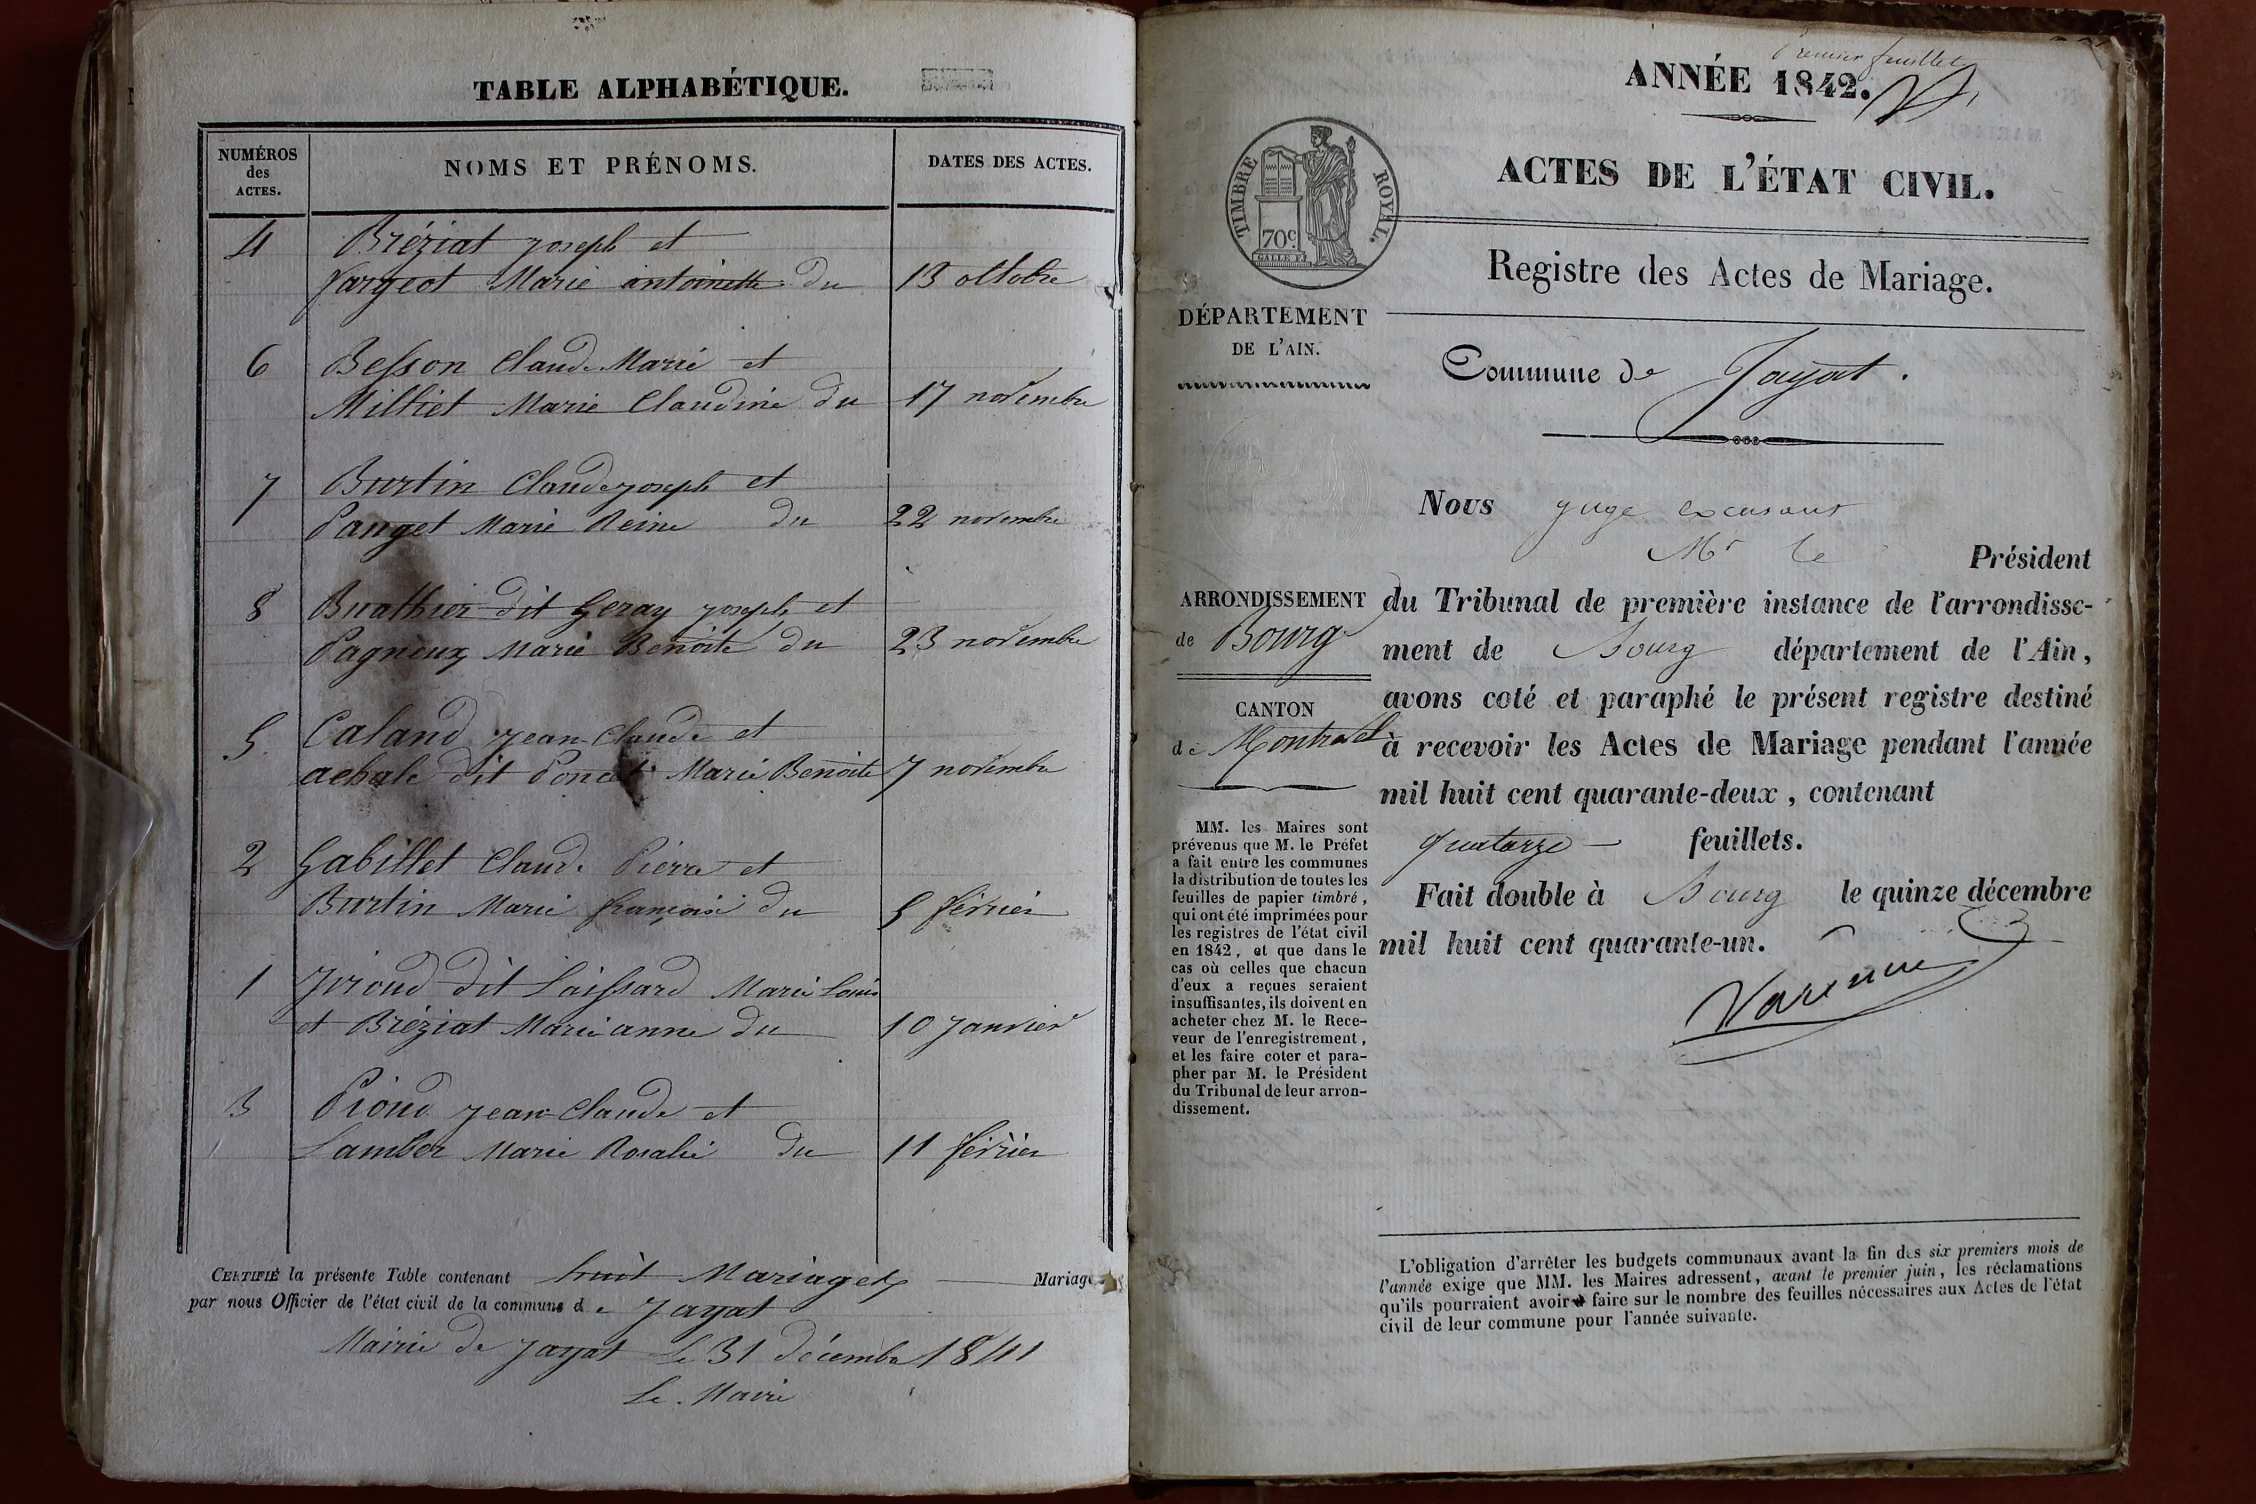 TABLE ALPHABÉTIQUE.
NUMÉROS
des
ACTES.
NOMS ET PRÉNOMS.
DATES DES ACTES.
4 Bréziat joseph et
Jargeot Marie antoinette du 13 octobre
6 Besson Claude Marie et
Milliet Marie Claudine du 17 novembre
7 Burtin Claude joseph et
Panget Marie Reine du 22 novembre
8 Buathier dit Geray joseph et
Pagneux Marie Benoite du 23 novembre
5 Caland jean Claude et
dit Poncet Marie Benoite 7 novembre
2 Gabillet Claude Pierre et
Burtin Marie françoise du 5 février
1 Jvioud dit Laissard Marie Louis
et Bréziat Marie anne du 10 janvier
3 Pioud jean Claude et
Lamber Marie Rosalie du 11 février
CERTIFIÉ la présente Table contenant huit Mariages Mariages
par nous Officier de l'état civil de la commune de Jayat
Mairie de Jayat Le 31 décembre 1841
Le Maire
Premier feuillet
ANNÉE 1842.
ACTES DE L'ÉTAT CIVIL.
TIMBRE ROYAL.
70c
Registre des Actes de Mariage.
DÉPARTEMENT
DE L'AIN.
Commune de Jayat.
Nous juge excusant
Mr le Président
ARRONDISSEMENT
de Bourg
CANTON
de Montrevel
du Tribunal de première instance de l'arrondisse-
ment de Bourg département de l'Ain,
avons coté et paraphé le présent registre destiné
à recevoir les Actes de Mariage pendant l'année
mil huit cent quarante-deux, contenant
quatorze feuillets.
Fait double à Bourg le quinze décembre
mil huit cent quarante-un.
Varenne
MM. les Maires sont
prévenus que M. le Préfet
a fait entre les communes
la distribution de toutes les
feuilles de papier timbré,
qui ont été imprimées pour
les registres de l'état civil
en 1842, et que dans le
cas où celles que chacun
d'eux a reçues seraient
insuffisantes, ils doivent en
acheter chez M. le Rece-
veur de l'enregistrement,
et les faire coter et para-
pher par M. le Président
du Tribunal de leur arron-
dissement.
L'obligation d'arrêter les budgets communaux avant la fin des six premiers mois de
l'année exige que MM. les Maires adressent, avant le premier juin, les réclamations
qu'ils pourraient avoir à faire sur le nombre des feuilles nécessaires aux Actes de l'état
civil de leur commune pour l'année suivante.